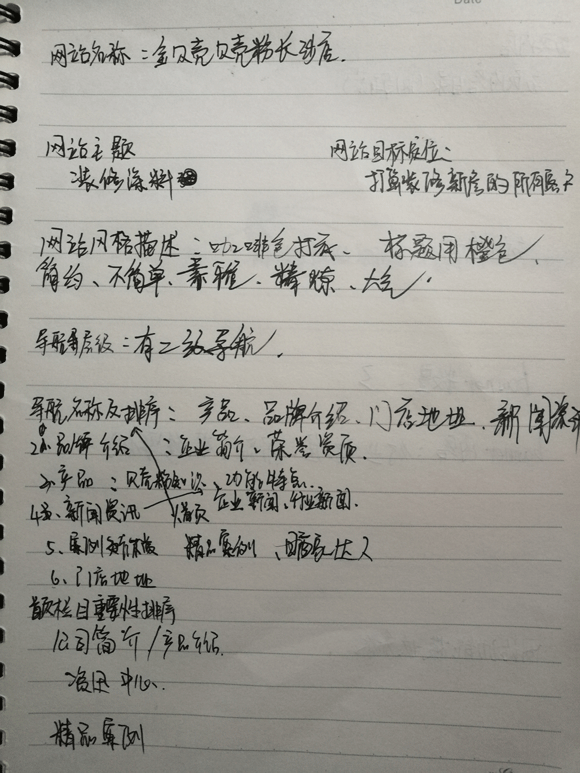 网站名称：金贝壳贝壳粉长沙店.
网站主题
网站目标定位：
装修涂料
打算装修新房的所有客户
网站风格描述：咖啡色打底、标题用橙色，
简约、不简单、素雅、精炼、大气
导航层级：有二级导航，
导航名称及排序：产品、品牌介绍、门店地址、新闻资讯
2、品牌介绍：企业简介、荣誉资质.
3、产品：贝壳粉知识、功能特点.
4、新闻资讯 企业新闻、行业新闻.
1、首页
5、案例 精品案例、
6、门店地址
首页栏目重要性排序
公司简介/产品介绍.
资讯中心.
精品案例